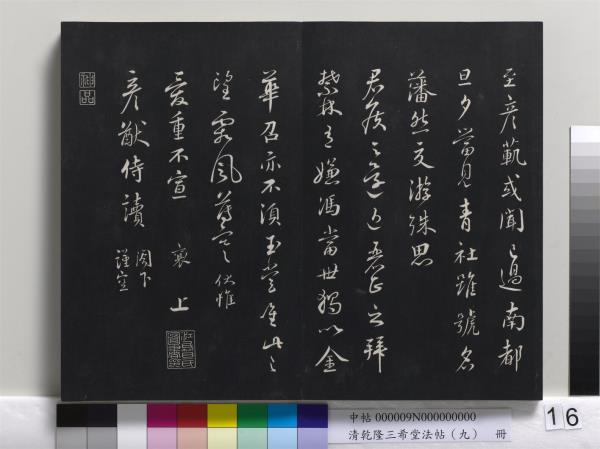 至彥範或聞已過南都
旦夕當見青社雖號名
藩然交游殊思
君侯之還近麗正之拜
禁林有嫌馮當世獨以金
華召亦不須玉堂唯此之
望霜風薄寒伏惟
愛重不宣 襄上
彥猷侍讀 閣下
謹空
中帖 000009N000000000
清乾隆三希堂法帖（九） 冊
16